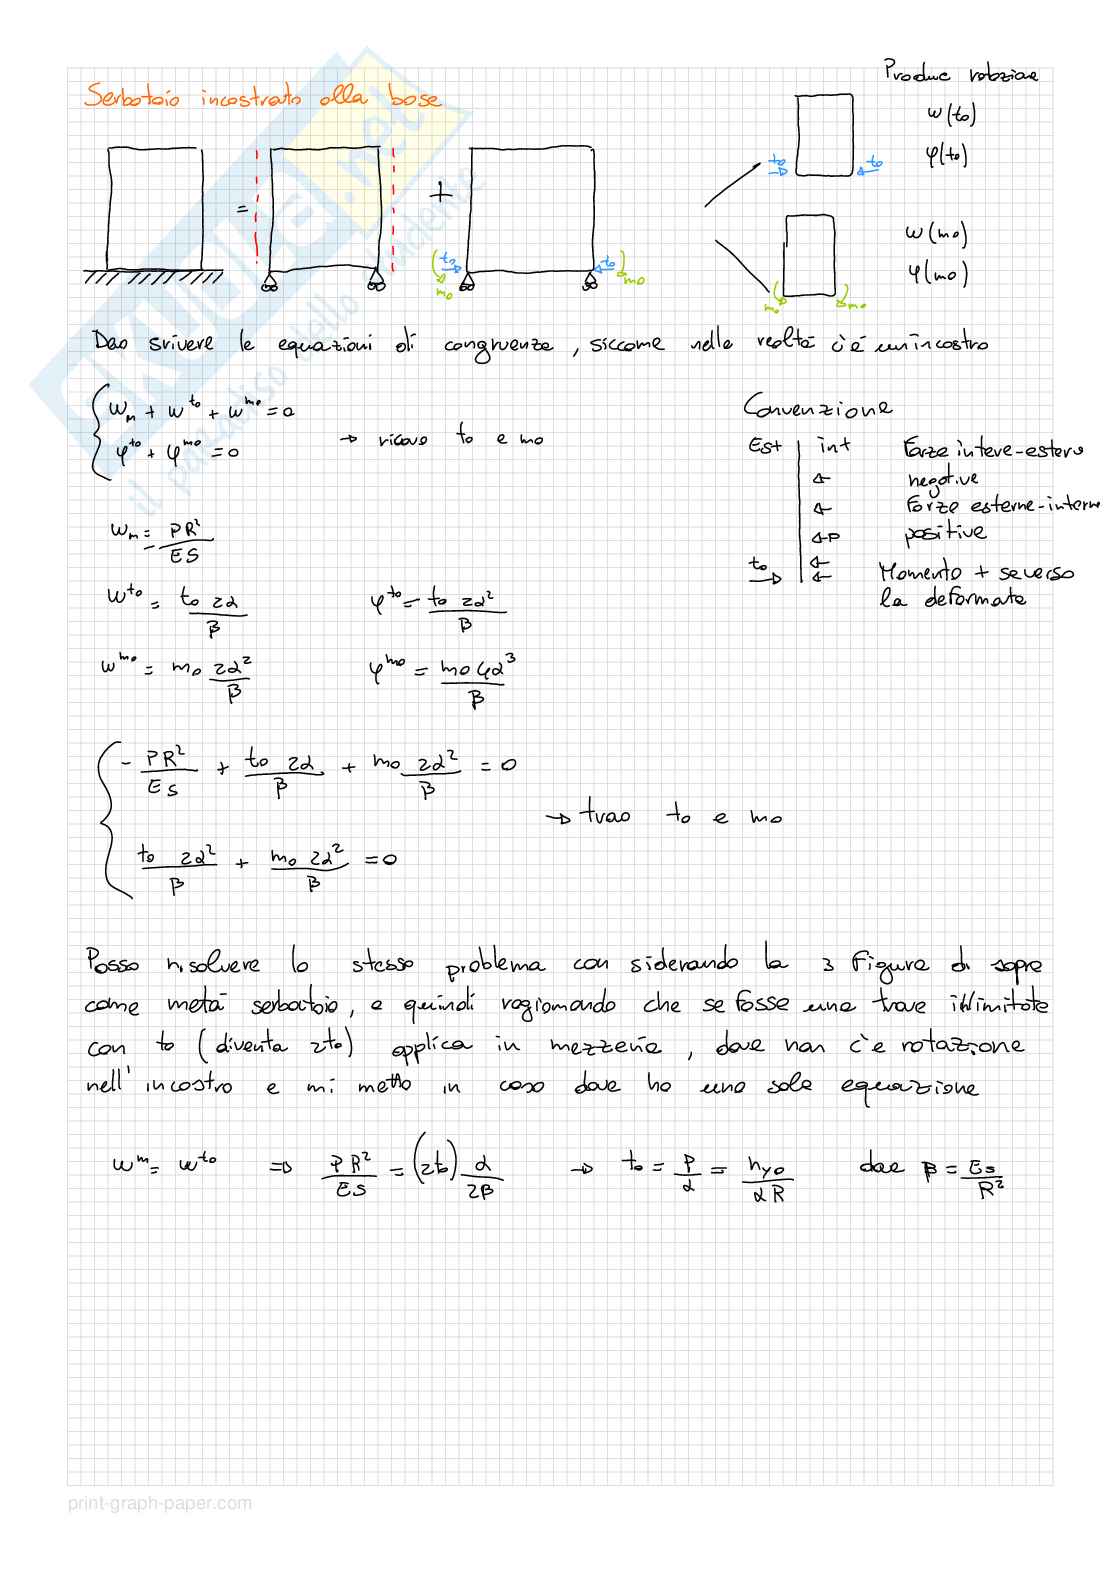 Produce rotazione
Serbatoio incastrato alla base
w(to)
φ(to)
to to
= +
to to
mo mo
w(mo)
φ(mo)
mo mo
Devo srivere le equazioni di congruenza, siccome nella realtà c'è un incastro
wm + w^to + w^mo = 0
φ^to + φ^mo = 0
→ ricavo to e mo
Convenzione
Est | int
Forze interne-esterno
negative
Forze esterne-interne
positive
P
to
Momento + se verso
la deformata
wm = - PR²/ES
w^to = to 2α/β
φ^to = to 2α²/β
w^mo = mo 2α²/β
φ^mo = mo 4α³/β
- PR²/ES + to 2α/β + mo 2α²/β = 0
→ trovo to e mo
to 2α²/β + mo 2α²/β = 0
Posso risolvere lo stesso problema considerando la 3 figura di sopra
come metà serbatoio, e quindi ragionando che se fosse una trave illimitata
con to (diventa 2to) applica in mezzeria, dove non c'è rotazione
nell'incastro e mi metto in caso dove ho una sola equazione
w^m = w^to ⇒ PR²/ES = (2to) α/2β → to = P/α = hγo/αR dove β = Es/R²
print-graph-paper.com
SKUOLA.net
il paradiso dello studente